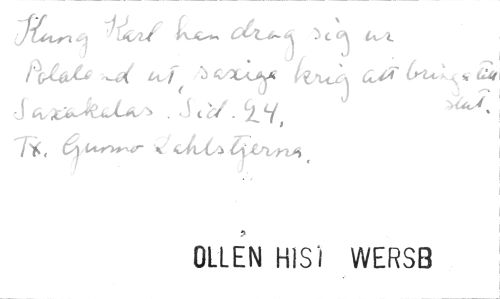 Kung Karl han drog sig ur
Polaland ut, saxiga krig att bringa till
Saxakalas. Sid. 24, slut.
Tx. Gunno Dahlstjerna.
OLLÉN HIST WERSB